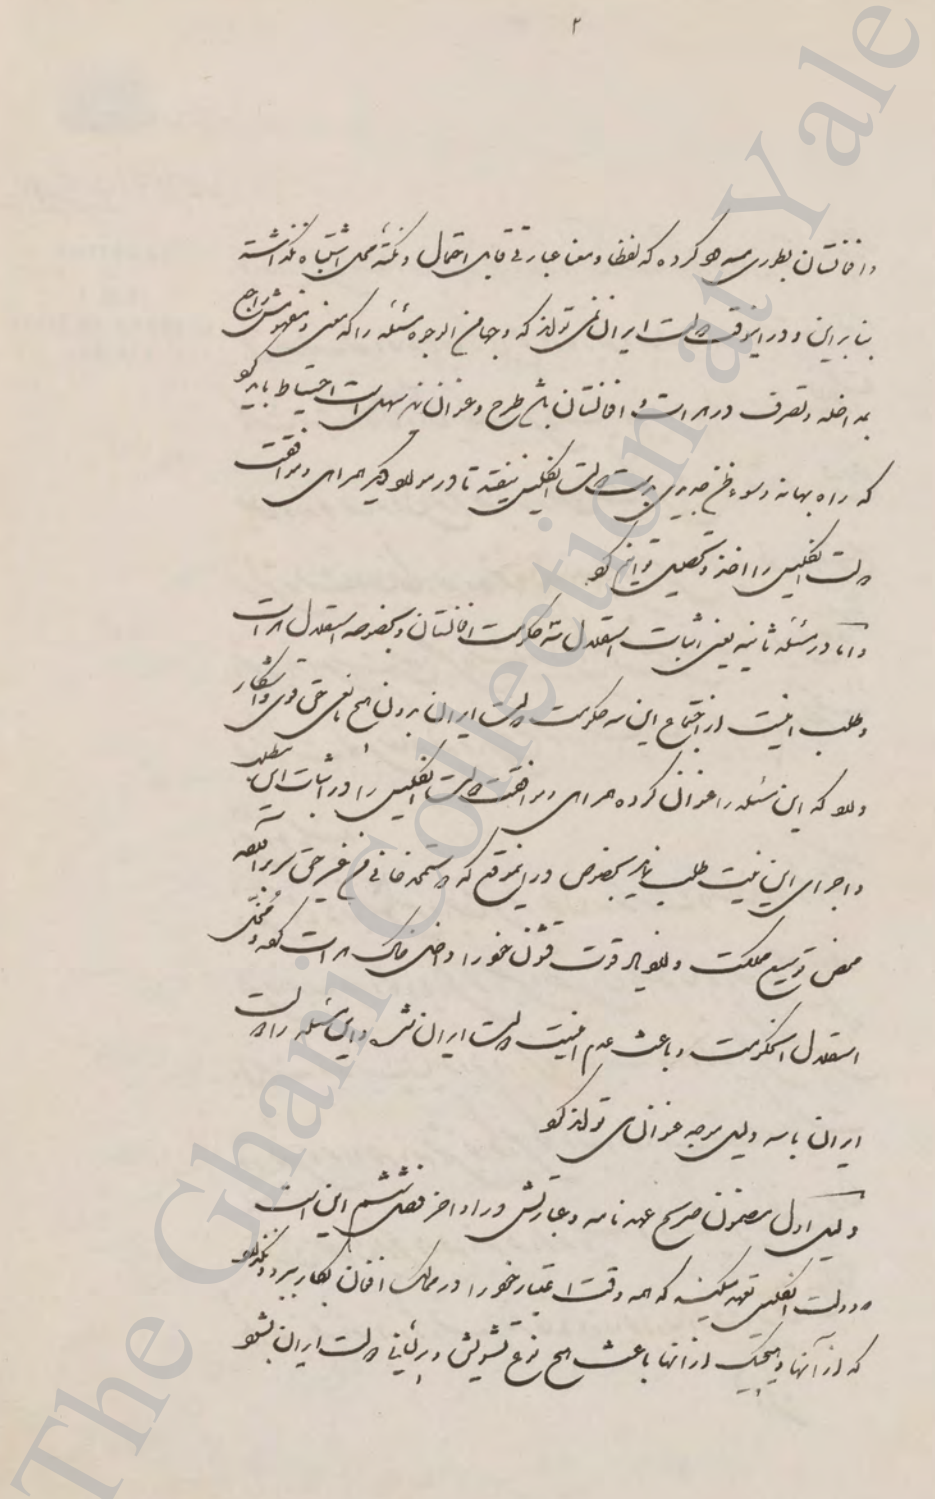 ۲
و افغانستان بطوری مسدود کرده که لفظا و معنا عبارتی قابل احتمال و نکته محل اشتباه نگذاشته
بنا بر این در اینوقت دولت ایران نمی تواند که وجها من الوجوه مسئله را که معنی و مفهومش راجع
بمداخله و تصرف در هرات و افغانستان باشد طرح و عنوان نماید احتیاط باید کرد
که راه بهانه و سوء ظن جدیدی بدست دولت انگلیس نیفتد تا در مواد دیگر همراهی و موافقت
دولت انگلیس را اخذ و تحصیل توانیم کرد
و اما در مسئله ثانیه یعنی اثبات استقلال سه حکومت افغانستان و بخصوصه استقلال هرات
و طلب امنیت از اجتماع این سه حکومت دولت ایران بدون هیچ مانعی حق قوی و آشکار
دارد که این مسئله را عنوان کرده همراهی و موافقت دولت انگلیس را در اثبات این مطلب
و اجرای این امنیت طلب نماید بخصوص در اینموقع که دوست محمد خان من غیر حق
محض توسیع مملکت و ازدیاد قوت قشون خود را داخل خاک هرات کرده و مخل
استقلال آنحکومت و باعث عدم امنیت دولت ایران شده و این مسئله را دولت
ایران با سه دلیل موجه عنوان می تواند کرد
دلیل اول مضمون صریح عهد نامه و عبارتش در اواخر فصل ششم این است
دولت انگلیس تعهد میکند که همه وقت اعتبار خود را در ممالک افغان بکار ببرد و نگذارد
که از آنها و هیچیک از آنها باعث هیچ نوع تشویش و پریشانی دولت ایران بشود
The Ghani Collection at Yale